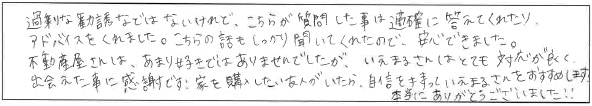 過剰な勧誘などではないけれど、こちらが質問した事は適確に答えてくれたり、
アドバイスをくれました。こちらの話もしっかり聞いてくれたので、安心できました。
不動産屋さんは、あまり好きではありませんでしたが、いえまるさんはとても対応が良く、
出会えた事に感謝です。家を購入したい友人がいたら、自信をもっていえまるさんをおすすめします。
本当にありがとうございました!!